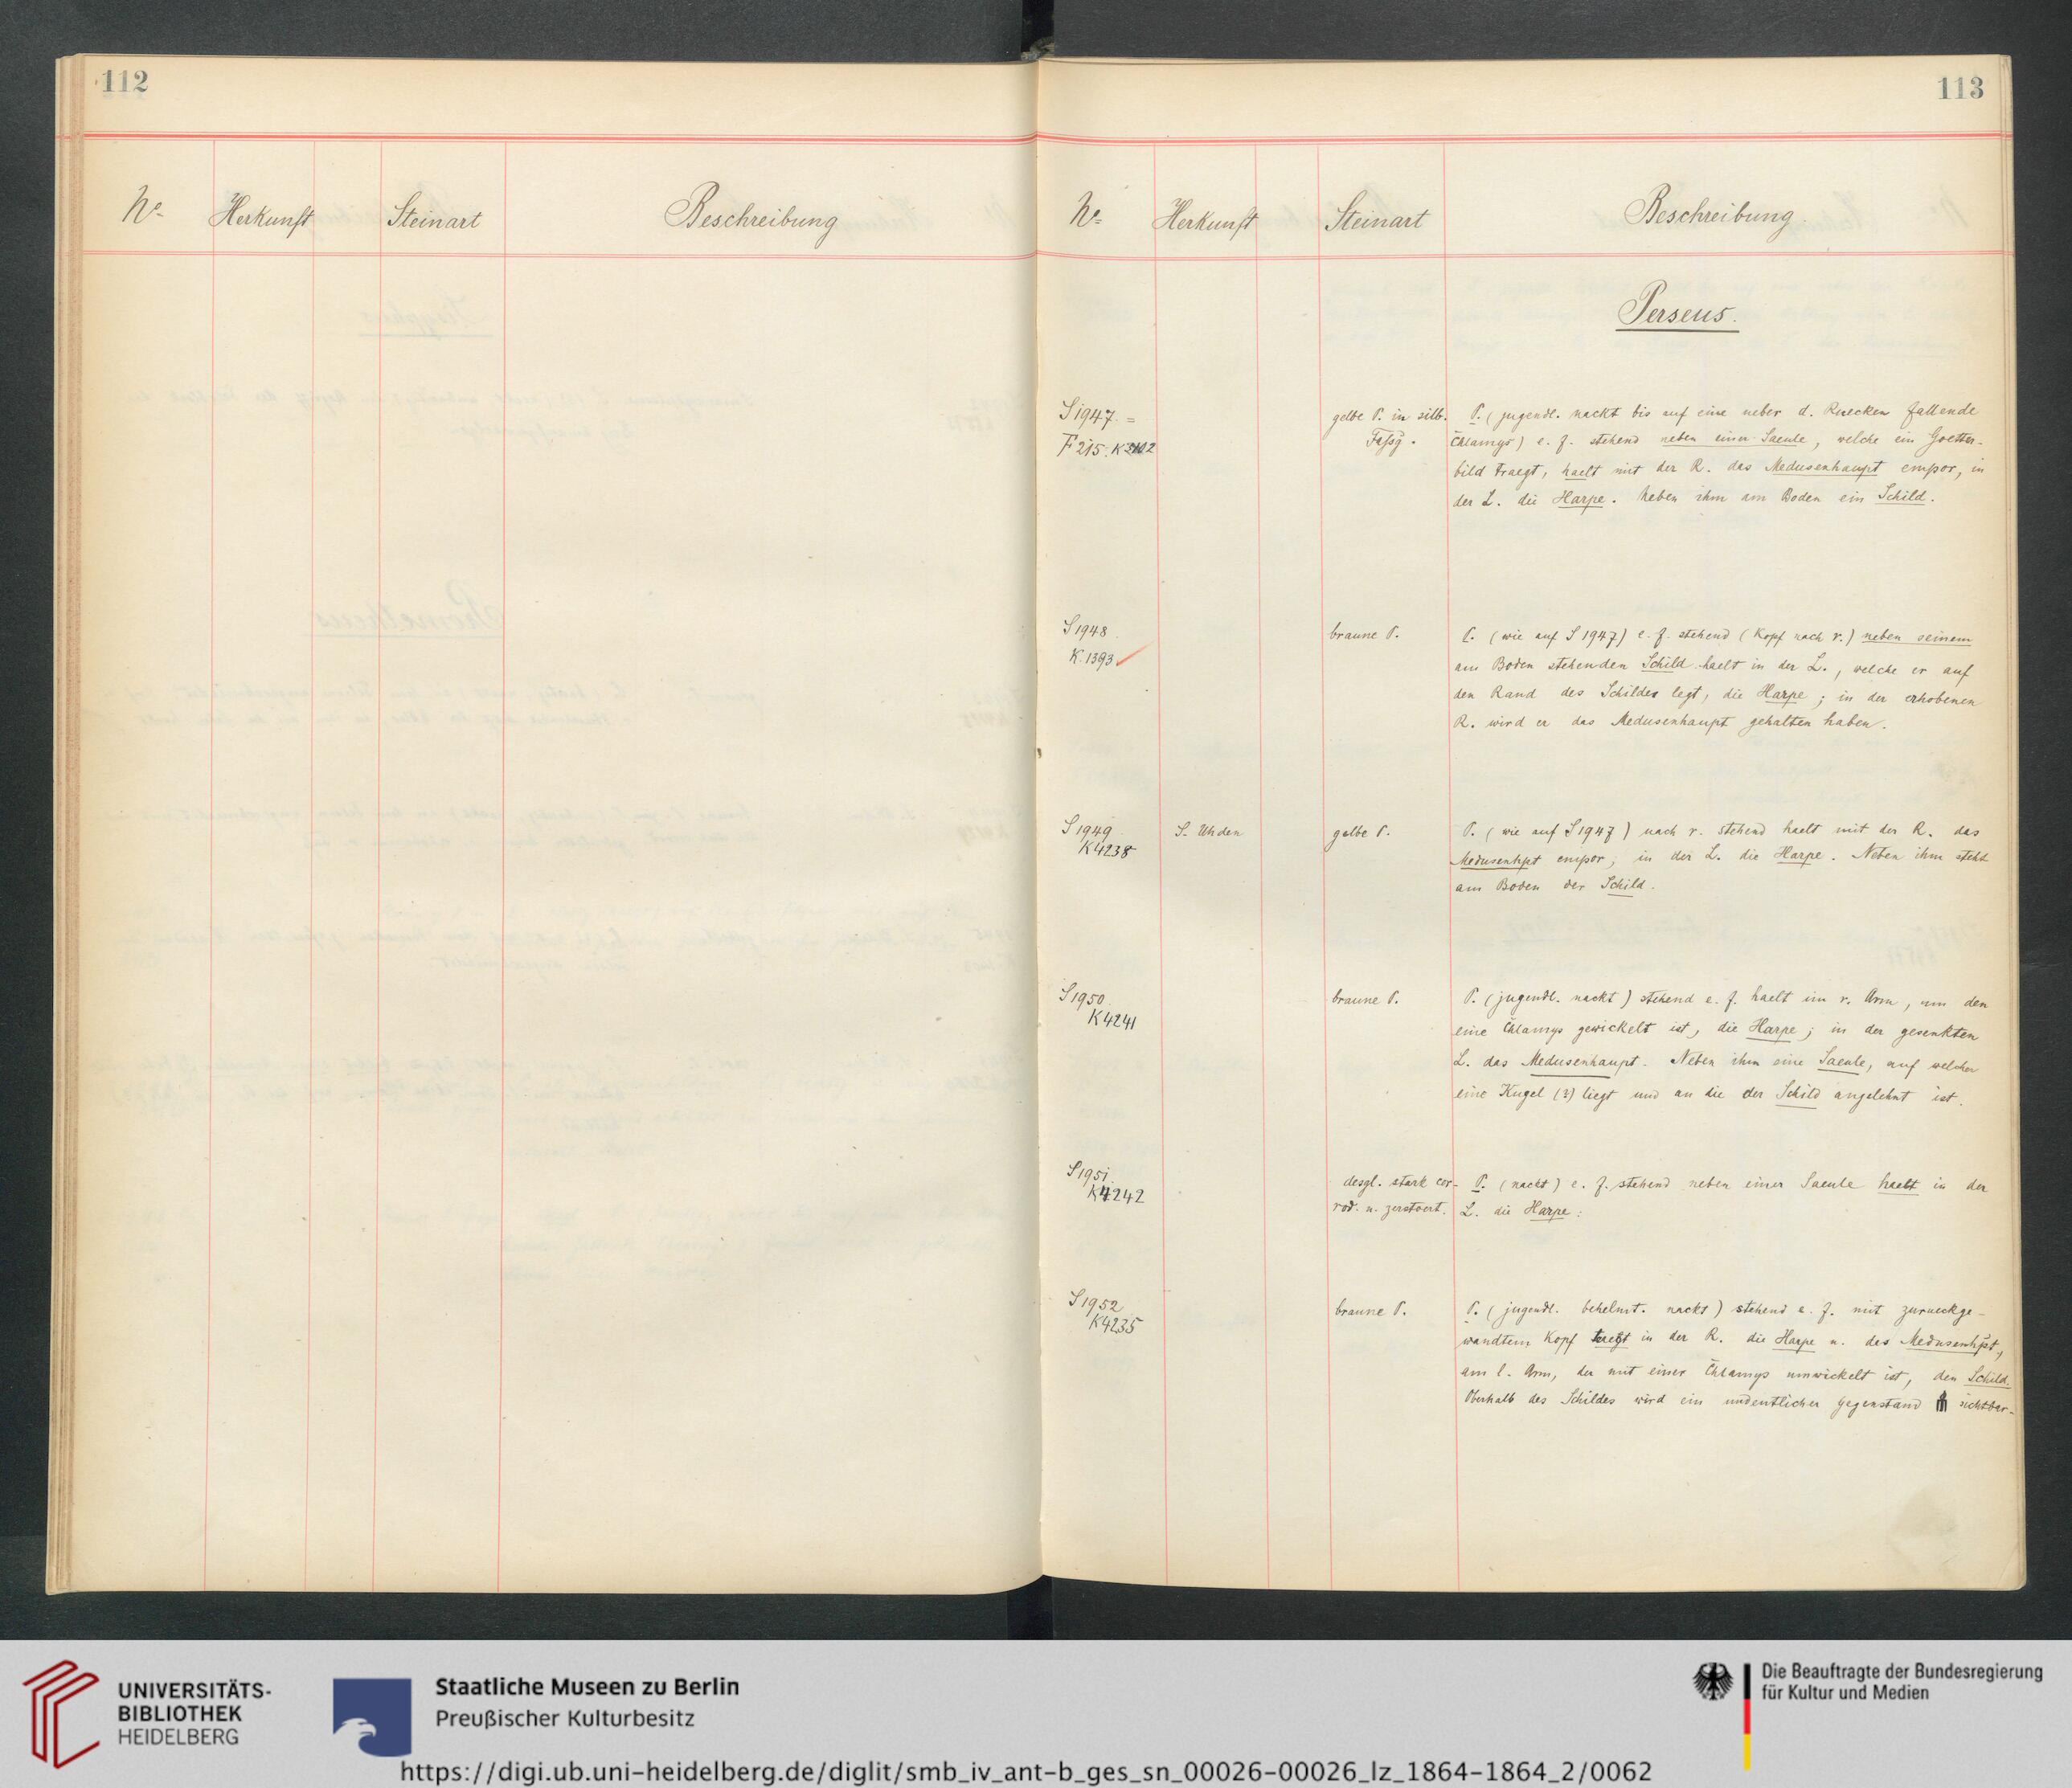 112
No Herkunft Steinart Beschreibung
113
No Herkunft Steinart Beschreibung
Perseus.
S 1947 = gelbe P. in silb. P. (jugendl. nackt bis auf eine ueber d. Ruecken fallende
F 215. Fassg. Chlamys) e. f. stehend neben einer Saeule, welche ein Goetter-
bild traegt, haelt mit der R. das Medusenhaupt empor, in
der L. die Harpe. Neben ihm am Boden ein Schild.
S 1948 braune P. P. (wie auf S 1947) e. f. stehend (Kopf nach r.) neben seinem
K. 1393 am Boden stehenden Schild haelt in der L., welche er auf
den Rand des Schildes legt, die Harpe; in der erhobenen
R. wird er das Medusenhaupt gehalten haben.
S 1949 S. Uhden gelbe P. P. (wie auf S 1947) nach r. stehend haelt mit der R. das
K4238 Medusenhpt empor, in der L. die Harpe. Neben ihm steht
am Boden der Schild.
S 1950 braune P. P. (jugendl. nackt) stehend e. f. haelt im r. Arm, um den
K4241 eine Chlamys gewickelt ist, die Harpe; in der gesenkten
L. das Medusenhaupt. Neben ihm eine Saeule, auf welcher
eine Kugel (?) liegt und an die der Schild angelehnt ist.
S 1951 desgl. stark cor- P. (nackt) e. f. stehend neben einer Saeule haelt in der
K4242 rod. u. zerstoert. L. die Harpe.
S 1952 braune P. P. (jugendl. behelmt. nackt) stehend e. f. mit zurueckge-
K4235 wandtem Kopf traegt in der R. die Harpe u. das Medusenhpt,
am l. Arm, der mit einer Chlamys umwickelt ist, den Schild.
Oberhalb des Schildes wird ein undeutlicher Gegenstand sichtbar.
UNIVERSITÄTS-
BIBLIOTHEK
HEIDELBERG
Staatliche Museen zu Berlin
Preußischer Kulturbesitz
Die Beauftragte der Bundesregierung
für Kultur und Medien
https://digi.ub.uni-heidelberg.de/diglit/smb_iv_ant-b_ges_sn_00026-00026_lz_1864-1864_2/0062